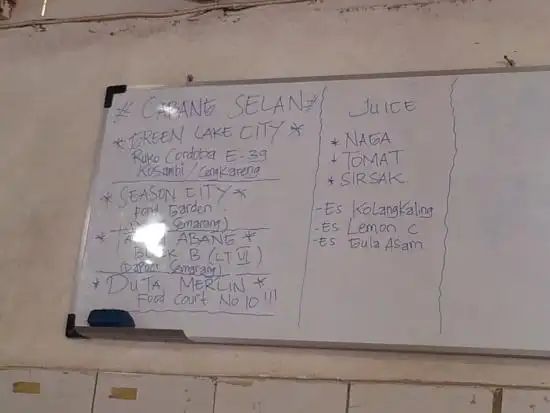 # CABANG SELAN #
* GREEN LAKE CITY *
Ruko Cordoba E-39
Kosambi/Cengkareng
* SEASON CITY *
Food Garden
Semarang)
* ABANG *
BLOCK B (LT VI)
(Dapoer Semarang)
* DUTA MERLIN *
Food Court No 10 !!!
JUICE
* NAGA
* TOMAT
* SIRSAK
- Es Kolangkaling
- Es Lemon C
- Es Gula Asam